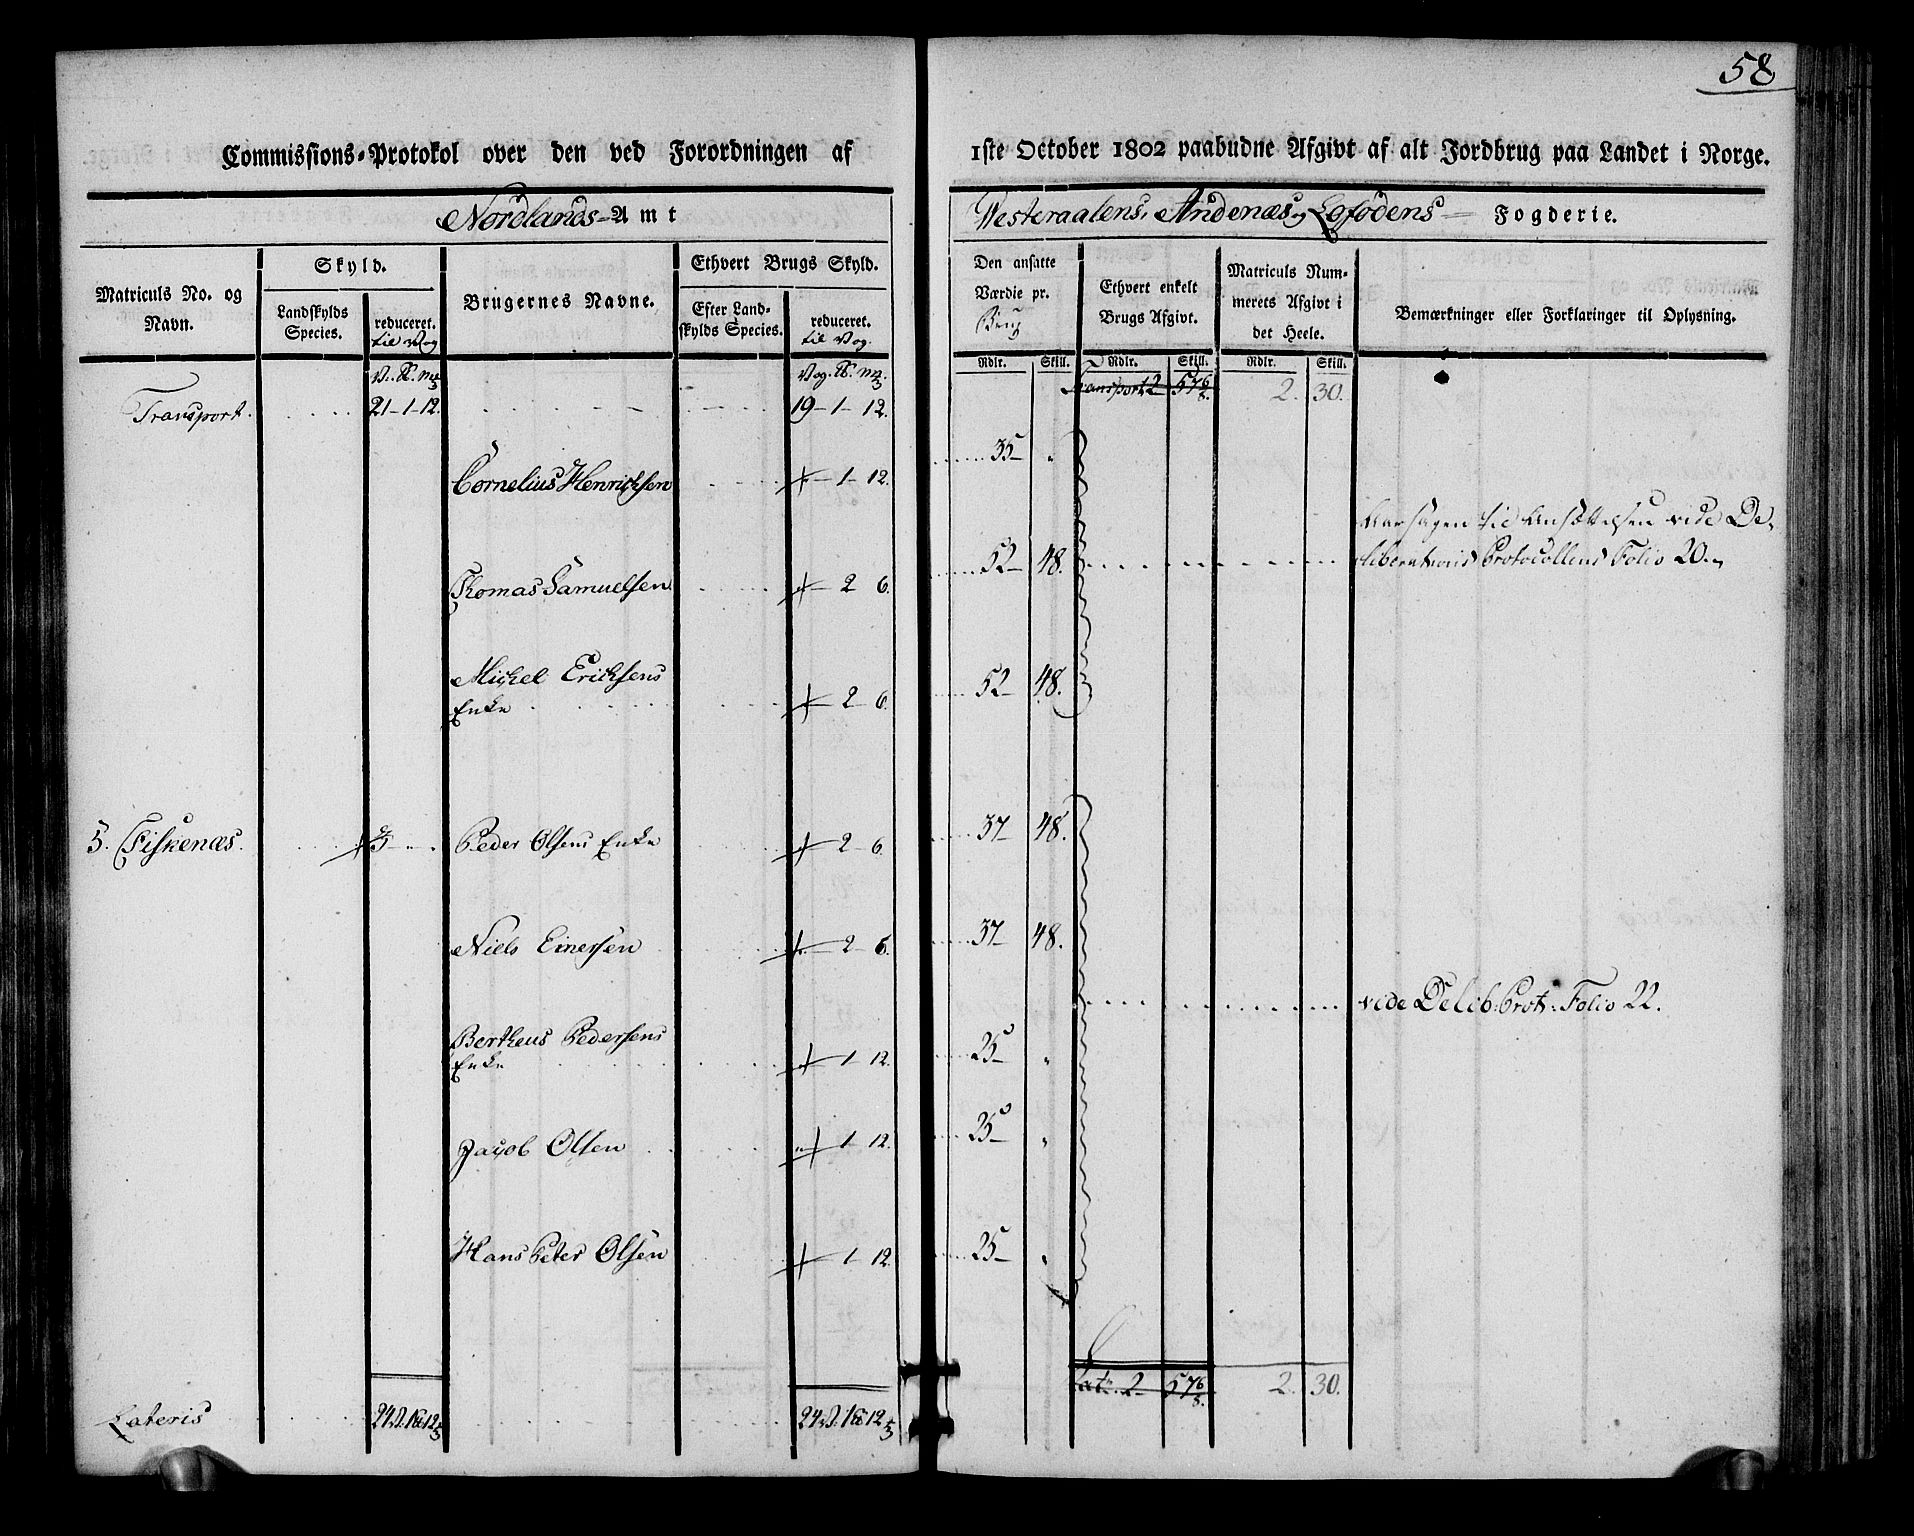 58
Commissions-Protokol over den ved Forordningen af 1ste October 1802 paabudne Afgivt af alt Jordbrug paa Landet i Norge.
Nordlands-Amt
Westeraalens, Andenæs og Lofodens Fogderie.
Matriculs No. og Navn.
Skyld.
Landskylds Species.
reduceret. til Vog
Brugernes Navne.
Ethvert Brugs Skyld.
Efter Landskylds Species.
reduceret. til Vog.
Den ansatte Værdie pr. Brug
Ethvert enkelt Brugs Afgivt.
Matriculs Nummerets Afgivt i det Heele.
Bemærkninger eller Forklaringer til Oplysning.
Rdlr. Skill. Rdlr. Skill. Rdlr. Skill.
Transport. 21-1-12. 19-1-12. Transport 2 57 6/8. 2. 30.
Cornelius Henrichsen 1-12. 35 "
Aarsagen til Ansættelsen vide De-
Thomas Samuelsen 2 6. 52 48. liberations Protocollens Folio 20.
Michel Erichsens
Enke 2 6. 52 48.
5. Fiskenæs. 3 Peder Olsens Enke 2 6. 37 48.
Niels Einersen 2 6. 37 48.
vide Delib: Prot: Folio 22.
Bertheus Pedersens
Enke 1 12. 25 "
Jacob Olsen 1 12. 25 "
Hans Peter Olsen 1 12. 25 "
Lateris 24 V: 1 12 24 V: 1 12 Lat: 2 57 6/8. 2. 30.